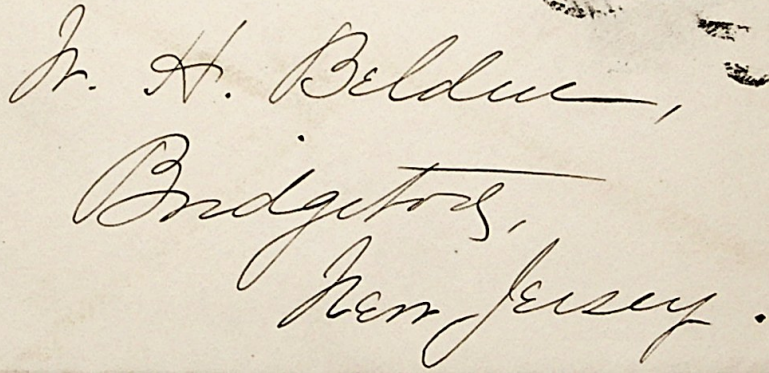 W. H. Belden,
Bridgeton,
New Jersey.